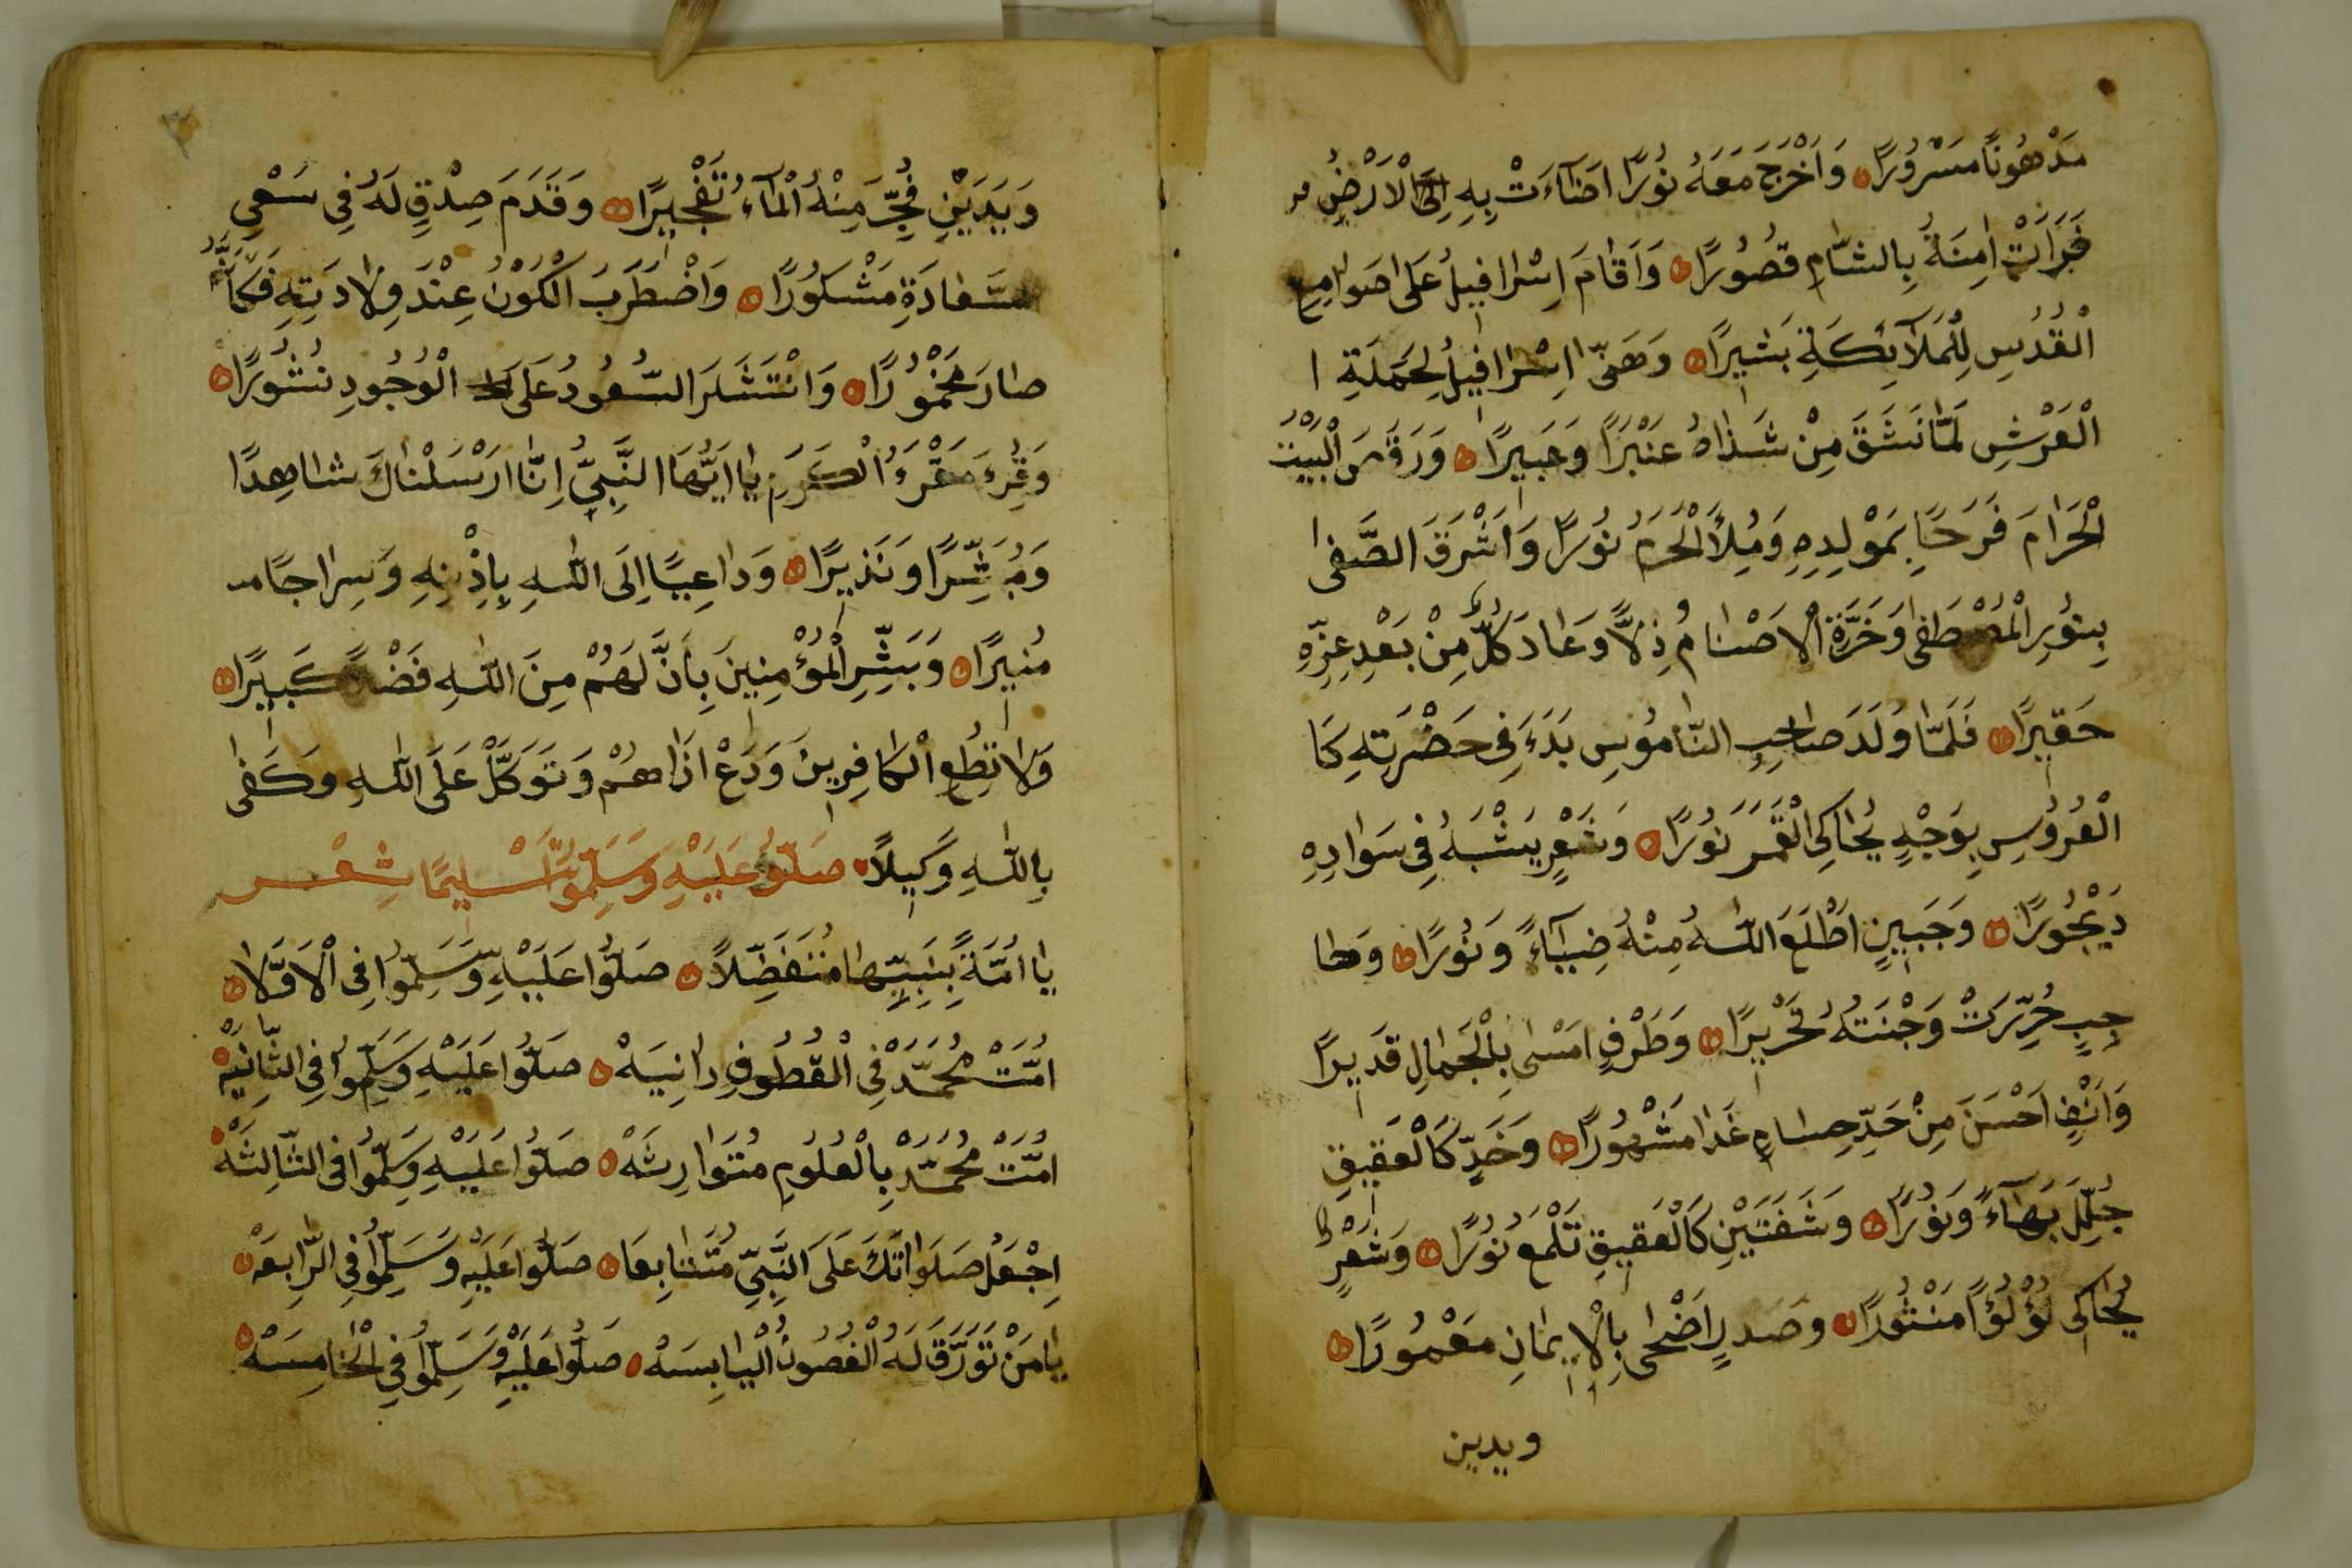 مَدْهُونًا مَسْرُورًا وَاَخْرَجَ مَعَهُ نُورًا اَضَآءَتْ بِهِ اِلَى الْاَرْضِ
فَرَاَتْ اٰمِنَةُ بِالشَّامِ قُصُورًا وَاَقَامَ اِسْرَافِيلُ عَلَى صَوَامِعِ
الْقُدُسِ لِلْمَلَآئِكَةِ بَشِيرًا وَهَنّٰى اِسْرَافِيلُ لِحَمَلَةِ ا
الْعَرْشِ لَمَّا نَشَقَ مِنْ شَذَاهُ عَنْبَرًا وَعَبِيرًا وَرَقَصَ الْبَيْتُ
الْحَرَامَ فَرَحًا بِمَوْلِدِهِ وَمُلِأَ الْحَرَمُ نُورًا وَاَشْرَقَ الصَّفٰى
بِنُورِ الْمُصْطَفٰى وَخَرَّةَ الْاَصْنَامُ ذِلًّا وَعَادَ كُلٌّ مِنْ بَعْدِ عِزِّهِ
حَقِيرًا فَلَمَّا وَلَدَ صَاحِبِ النَّامُوسِ بَدَءَ فِى حَضْرَتِهِ كَا
الْعُرُوسِ بِوَجْهٍ يُحَاكِى الْقَمَرَ نُورًا وَشَعْرٍ يَشْبَهُ فِى سَوَادِهِ
دَيْجُورًا وَجَبِينٍ اَطْلَعَ اللّٰهُ مِنْهُ ضِيَآءً وَنُورًا وَحَا
جِبٍ حُرِّرَتْ وَجْنَتُهُ تَحْرِيْرًا وَطَرْفٍ اَمْسٰى بِالْجَمَالِ قَدِيرًا
وَاَنْفٍ اَحْسَنَ مِنْ حَدِّ حِسَامٍ غَدَا مَشْهُورًا وَخَدٍّ كَالْعَقِيقِ
جُلِّلَ بَهَآءً وَنُورًا وَشَفَتَيْنِ كَالْعَقِيقِ تَلْمَعُ نُورًا وَثَغْرٍ كَا
يُحَاكِى لُؤْلُؤًا مَنْثُورًا وَصَدْرٍ اَضْحٰى بِالْاِيمَانِ مَعْمُورًا
ويدين
وَيَدَيْنِ فُجِّرَ مِنْهُ الْمَآءُ تَفْجِيرًا وَقَدَمَ صِدْقٍ لَهُ فِى سَعْىِ
سَّعَادَةِ مَشْكُورًا وَاضْطَرَبَ الْكَوْنُ عِنْدَ وِلَادَتِهِ فَكَاَنَّهُ
صَارَ مَخْمُورًا وَانْتَشَرَ السُّعُودُ عَلَى الْوُجُودِ نُشُورًا
وَقُرِءَ مَقْرَءُ الْكَرَمِ يَا اَيُّهَا النَّبِىُّ اِنَّا اَرْسَلْنَاكَ شَاهِدًا
وَمُبَشِّرًا وَنَذِيرًا وَدَاعِيًا اِلَى اللّٰهِ بِاِذْنِهِ وَسِرَاجًا مـ
مُنِيرًا وَبَشِّرِ الْمُؤْمِنِينَ بِاَنَّ لَهُمْ مِنَ اللّٰهِ فَضْلًا كَبِيرًا
وَلَا تُطِعِ الْكَافِرِينَ وَدَعْ اَذَاهُمْ وَتَوَكَّلْ عَلَى اللّٰهِ وَكَفٰى
بِاللّٰهِ وَكِيلًا صَلُّو عَلَيْهِ وَسَلِّمُوا تَسْلِيمًا شِعْر
يَا اُمَّةً بِنَبِيِّهَا مُتَفَضِّلًا صَلُّوا عَلَيْهِ وَسَلِّمُوا فِى الْاَوَّلَا
اُمَّتْ مُحَمَّدْ فِى الْقُطُوفِ دَانِيَهْ صَلُّوا عَلَيْهِ وَسَلِّمُوا فِى الثَّانِيَهْ
اُمَّتْ مُحَمَّدْ بِالْعُلُومِ مُتَوَارِثَهْ صَلُّوا عَلَيْهِ وَسَلِّمُوا فِى الثَّالِثَهْ
اِجْعَلْ صَلَوَاتَكَ عَلَى النَّبِىِّ مُتَتَابِعَا صَلُّوا عَلَيْهِ وَسَلِّمُوا فِى الرَّابِعَهْ
يَا مَنْ تَوَرَّقَ لَهُ الْغُصُونُ الْيَابِسَهْ صَلُّوا عَلَيْهِ وَسَلِّمُوا فِى الْخَامِسَهْ